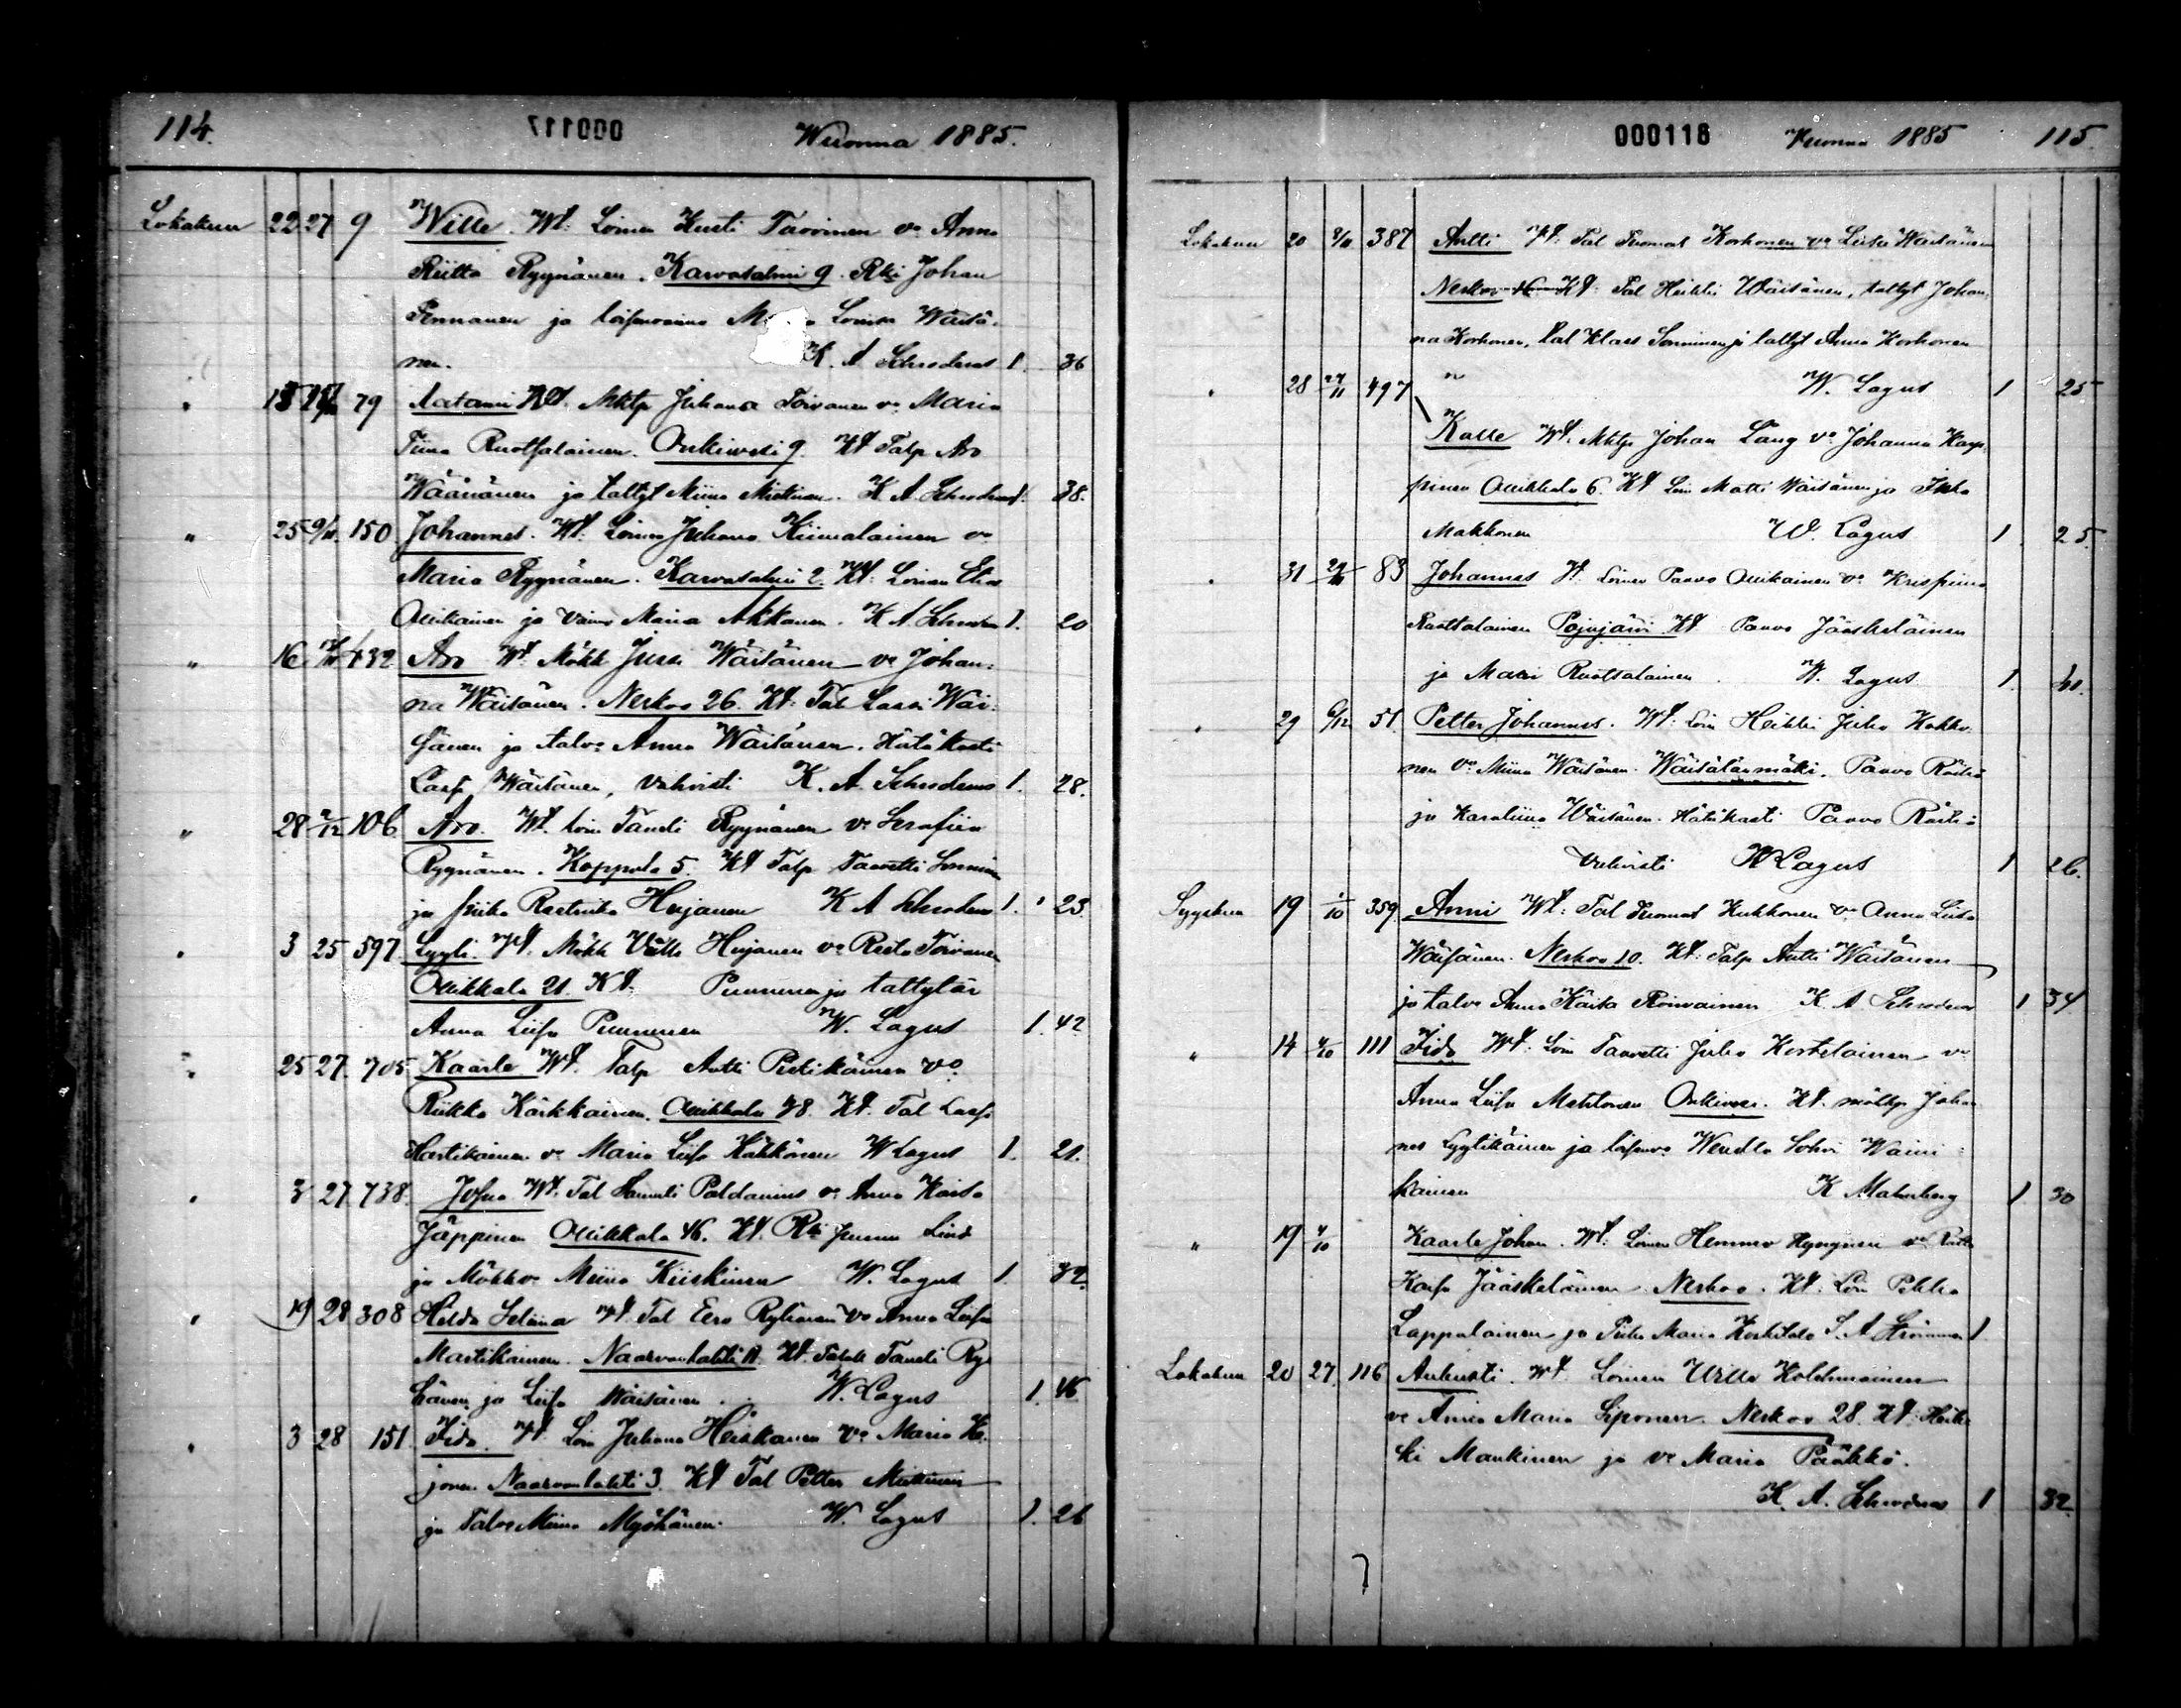 114. 000117 Wuonna 1885.
Lokakuu 22 27 9 Wille. Wt: Loinen Kusti Toivinen vo Anna
Riitta Ryynänen. Karvasalmi 9. Rki Johan
Pennanen ja loisenvaimo Loviisa Wäisä-
nen. K. A. Schroderus 1. 36
79 Aatami Wt. Mktp Juhana Toivanen vo Maria
Tiina Ruotsalainen. Onkiwesi 9. Kt Talp Aro
Wäänänen ja taltyt Miina Miettinen. K A Schroderus 1. 38.
" 25 9/11. 150 Johannes. Wt: Loinen Juhana Kiimalainen vo
Maria Ryynänen. Karvasalmi 2. Kt: Loinen Elias
Ollikainen ja vaimo Maria Akkanen. K A Schroderus 1. 20
" 16 432 Aro Wt. Mökk Jussi Wäisänen vo Johan-
na Wäisänen. Nerkoo 26. Kt: Tal Lassi Wäi-
sänen ja talvo Anna Wäisänen. Hätäkasti
Casp Wäisänen, vahvisti K. A. Schroderus 1. 28.
" 28 2/12 106 Aro. Wt. loin Taneli Ryynänen vo Serafiia
Ryynänen. Koppola 5. Kt Talp Taavetti Sonninen
ja piika Reetrika Hujanen K A Schroderus 1. 23
3 25 597 Lyyli. Wt. Mökk Ville Hujanen vo Reeta Toivanen
Ollikkala 21. Kt. Punnunen ja taltytär
Anna Liisa Punnunen W. Lagus 1. 42
25 27. 705 Kaarle Wt. Talp Antti Pietikäinen vo
Riikka Kärkkäinen. Ollikkala 38. Kt. Tal Casp
Hartikainen vo Maria Liisa Häkkönen W Lagus 1. 21.
3 27 738. Josua Wt. Tal Samuli Paldanius vo Anna Kaisa
Jäppinen Ollikkala 46. Kt. Rki Lind
ja Mökkvo Miina Kiiskinen W. Lagus 1. 32.
19 28 308 Hilda Seliina Wt. Tal Eero Rytkönen vo Anna Liisa
Martikainen. Naarvanlahti 11. Kt. Talolli Taneli Ryt-
könen ja Liisa Wäisänen. W. Lagus 1. 46
3 28 151 Fida. Wt. Loin Juhana Heiskanen vo Maria Hu-
janen Naarvanlahti 3. Kt Tal Petter Miettinen
ja Talvo Miina Myöhänen. W. Lagus 1. 26
000118 Vuonna 1885 115.
Lokakuu 20 2/11 387 Antti Wt: Tal Tuomas Korhonen vo Liisa Wäisänen
Nerkoo 16 Kt: Tal Heikki Wäisänen, taltyt Johan-
na Korhonen, tal Klaes Sonninen ja taltyt Anna Korhonen
28 27/11 497 " W. Lagus 1 25
Kalle Wt. Mktp Johan Lang vo Johanna Kaup-
pinen Ollikkala 6. Kt Loin Matti Wäisänen ja Inka
Makkonen W. Lagus 1. 25.
31 29/11 83 Johannes Wt Loinen Paavo Ollikainen vo Krespiina
Ruottalainen Pajujärvi Kt Paavo Jääskeläinen
ja Mari Ruottalainen. W. Lagus 1.
29 6/12 51 Petter Johannes. Wt: Loin Heikki Juho Kokko-
nen vo Miina Wäisänen. Wäisälänmäki. Paavo Räihä
ja Karoliina Wäisänen. Hätäkasti Paavo Räihä
Vahvisti W Lagus 1 26.
Syyskuu 19 1/10 359 Anni Wt: Tal Tuomas Kukkonen vo Anna Liisa
Wäisänen. Nerkoo 10. Kt: Talp Antti Wäisänen
ja talvo Anna Kaisa Roivainen K. A. Schroderus 1 34
" 14 4/10 111 Fido Wt: Loin Taavetti Juho Koskelainen vo
Anna Liisa Mahlonen Onkivesi. Kt. mökkp Johan-
nes Lyytikäinen ja loisenvo Wendla Sohvi Waini-
kainen K Malmberg 1 30
" 19 4/10 Kaarle Johan. Wt: Loinen Hemmo Hynynen vo
Kaisa Jääskeläinen Nerkoo. Kt. Loin Pekka
Lappalainen ja Piika Maria Koskitalo S. A. Strömmer 1
Lokakuu 20 27 116 Aukusti. Wt Loinen Wille Kolehmainen
vo Anna Maria Siponen Nerkoo 28. Kt: Heik-
ki Mankinen ja vo Maria Pääkkö.
K. A. Schroderus 1 32